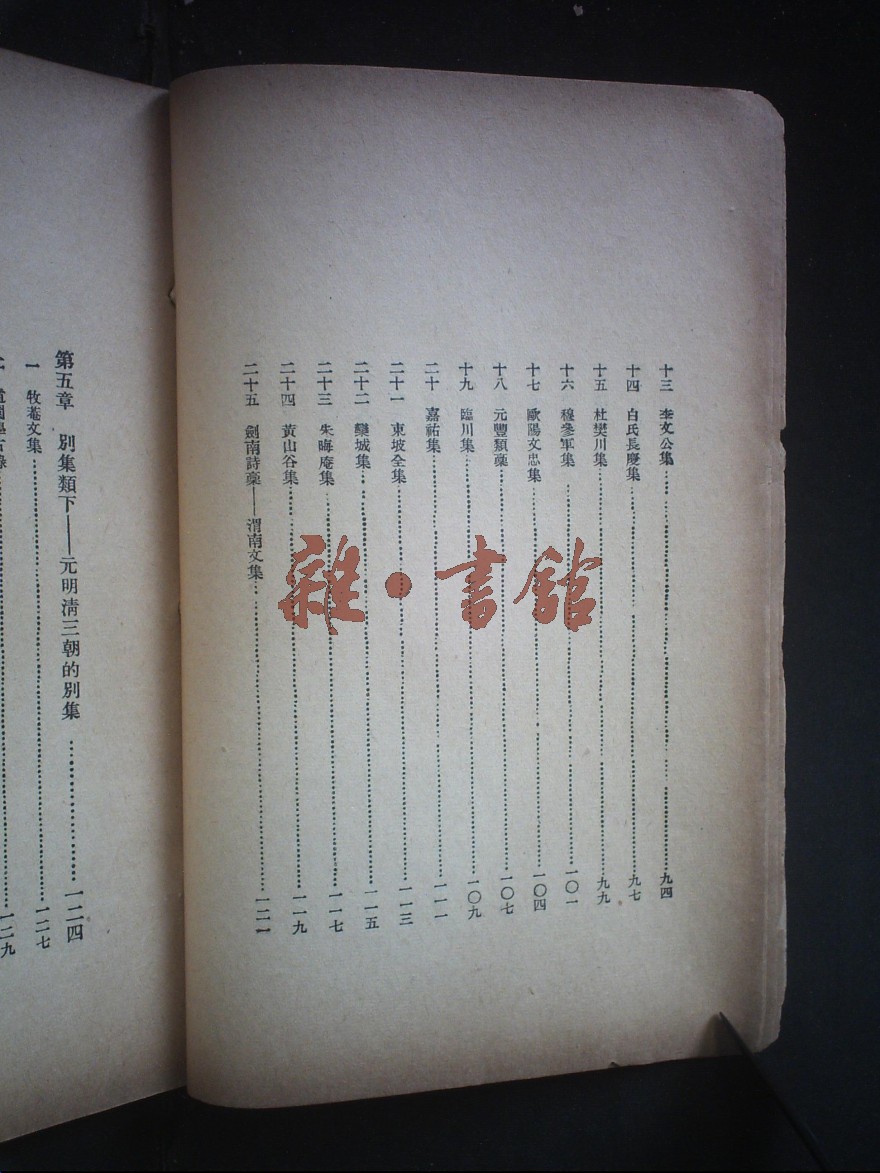 十三 李文公集……九四
十四 白氏長慶集……九七
十五 杜樊川集……九九
十六 穆參軍集……一〇一
十七 歐陽文忠集……一〇四
十八 元豐類藁……一〇七
十九 臨川集……一〇九
二十 嘉祐集……一一一
二十一 東坡全集……一一三
二十二 欒城集……一一五
二十三 朱晦庵集……一一七
二十四 黃山谷集……一一九
二十五 劍南詩藁——渭南文集……一二一
第五章 別集類下——元明清三朝的別集……一二四
一 牧菴文集……一二七
一二九
雜·書館